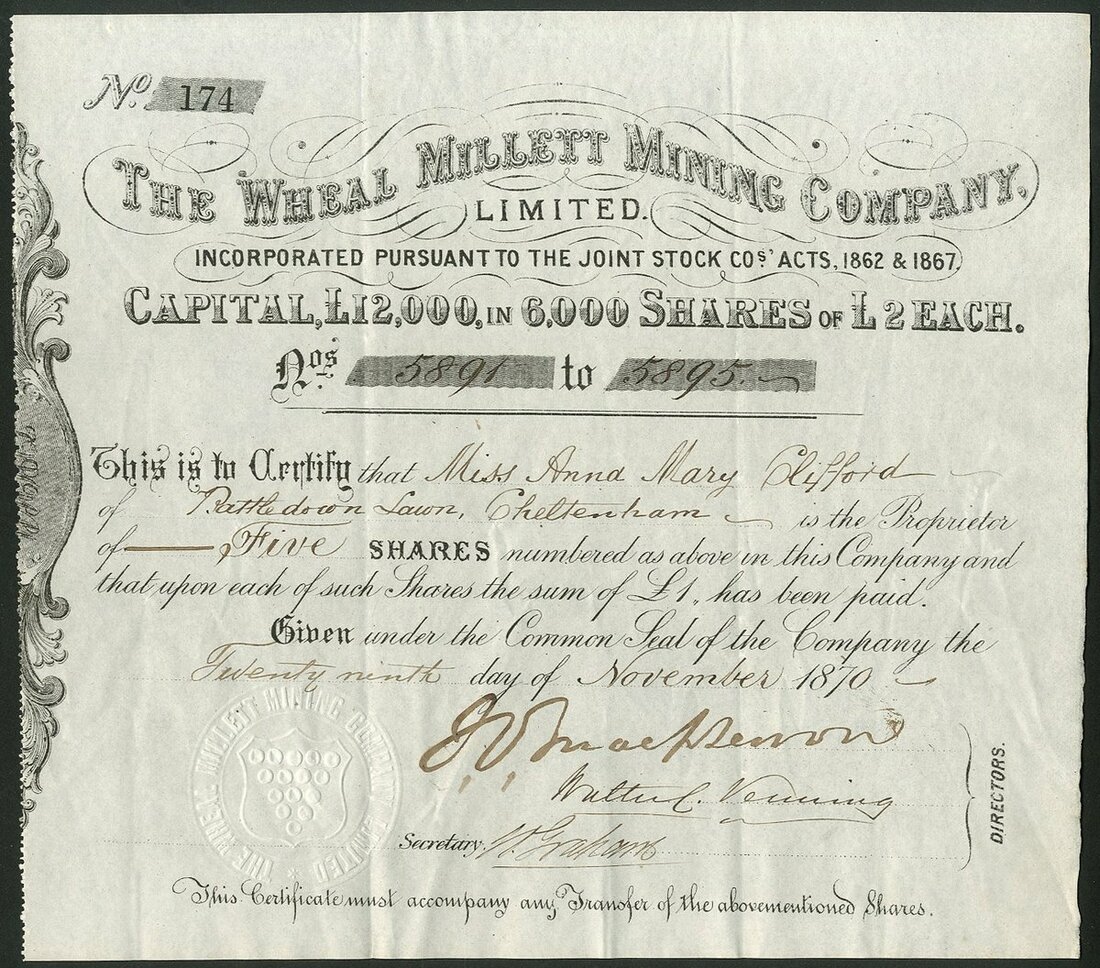 No. 174
THE WHEAL MILLETT MINING COMPANY,
LIMITED.
INCORPORATED PURSUANT TO THE JOINT STOCK COs' ACTS, 1862 & 1867,
CAPITAL, £12,000, IN 6,000 SHARES OF £2 EACH.
Nos 5891 to 5895.
This is to Certify that Miss Anna Mary Clifford
of Battledown Lawn, Cheltenham is the Proprietor
of Five SHARES numbered as above in this Company and
that upon each of such Shares the sum of £1,, has been paid.
Given under the Common Seal of the Company the
Twenty ninth day of November 1870
Walter C. Venning
DIRECTORS.
Secretary, Graham
THE WHEAL MILLETT MINING COMPANY LIMITED
This Certificate must accompany any Transfer of the abovementioned Shares.